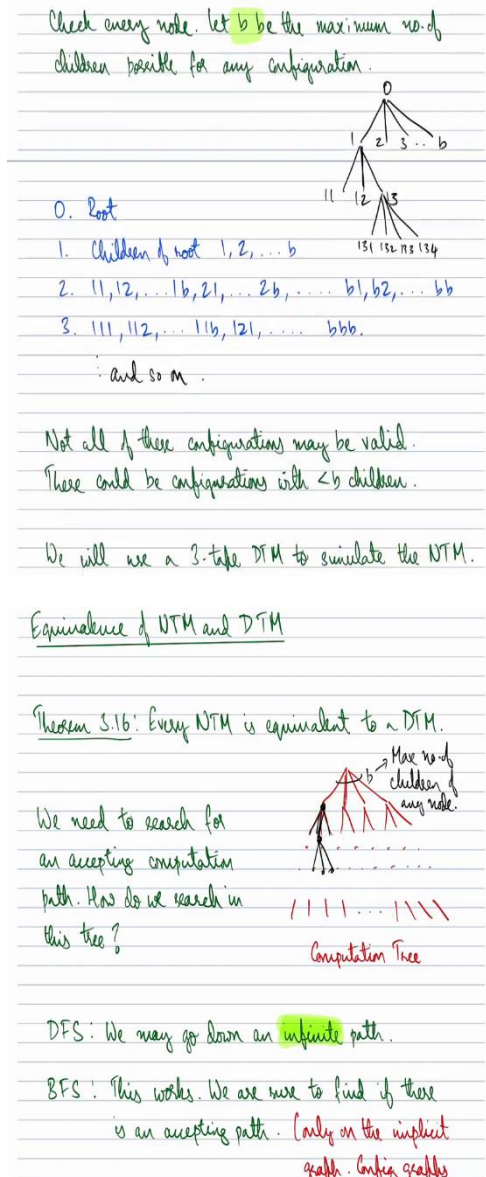 Check every node. Let b be the maximum no. of
children possible for any configuration.
0
1 2 3 .. b
11 12 13
131 132 133 134
0. Root
1. Children of root 1, 2, ... b
2. 11, 12, ... 1b, 21, ... 2b, .... b1, b2, ... bb
3. 111, 112, ... 11b, 121, .... bbb.
⋮ and so on.
Not all of these configurations may be valid.
There could be configurations with <b children.
We will use a 3-tape DTM to simulate the NTM.
Equivalence of NTM and DTM
Theorem 3.16: Every NTM is equivalent to a DTM.
b → Max no. of
children of
any node.
We need to search for
an accepting computation
path. How do we search in
this tree?
Computation Tree
DFS: We may go down an infinite path.
BFS: This works. We are sure to find if there
is an accepting path. (only on the implicit
graph. Config graphs